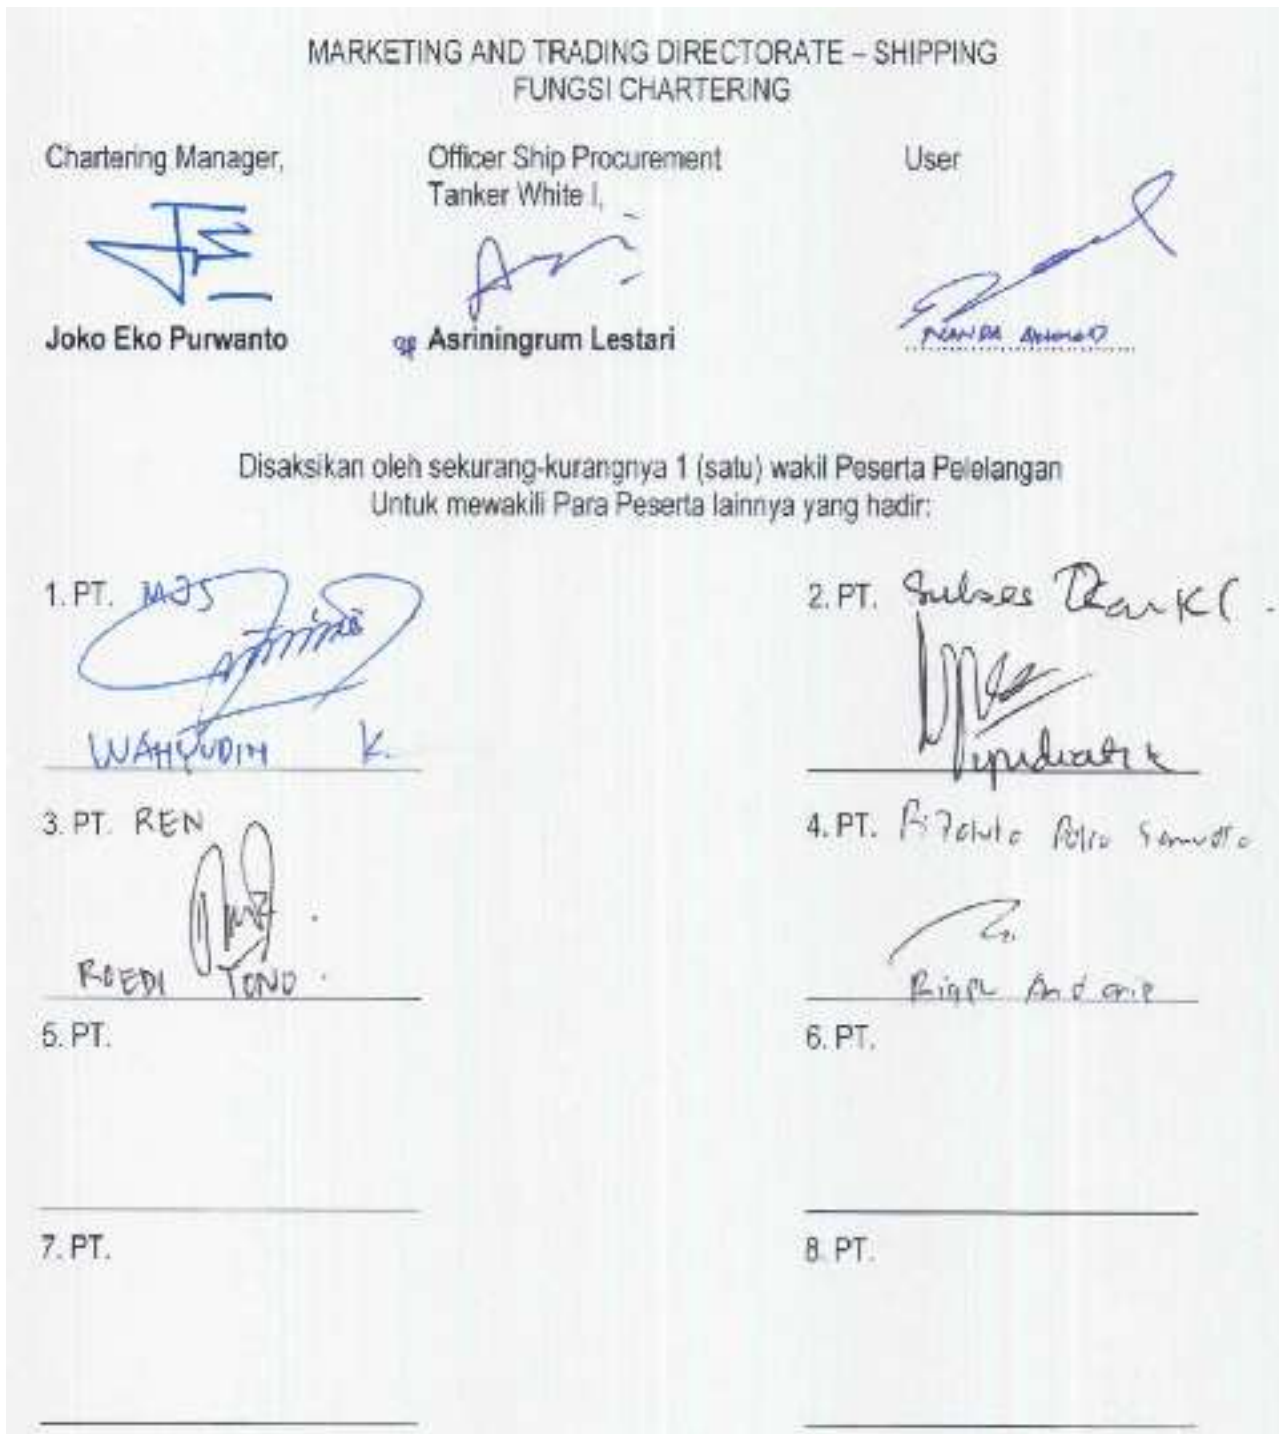 MARKETING AND TRADING DIRECTORATE – SHIPPING
FUNGSI CHARTERING
Chartering Manager,
Officer Ship Procurement
Tanker White I,
User
Joko Eko Purwanto
Asriningrum Lestari
NANDA AHMAD
Disaksikan oleh sekurang-kurangnya 1 (satu) wakil Peserta Pelelangan
Untuk mewakili Para Peserta lainnya yang hadir:
1. PT. MJS
WAHYUDIN K.
2. PT. Sukses
3. PT. REN
ROEDI TONO.
4. PT.
5. PT.
6. PT.
7. PT.
8. PT.